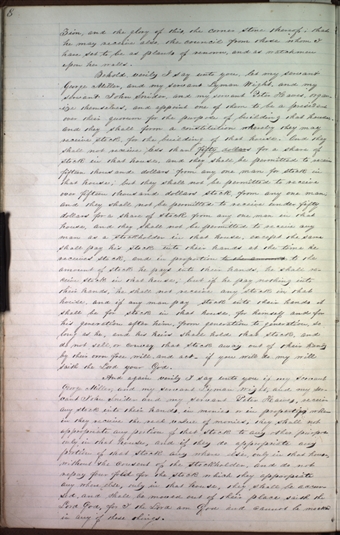 Zion, and the glory of this the corner stone thereof - that
he may receive also the council from those whom I
have set to be as plants of renown, and as watchmen
upon her walls.
Behold verily I say unto you, let my servant
George Miller, and my servant Lyman Wight, and my
servant John Snider, and my servant Peter Haws, organ-
ize themselves, and appoint one of them to be a president
over their quorum for the purpose of building that house,
and they shall form a constitution whereby they may
receive stock for the building of that house. And they
shall not receive less than fifty dollars for a share of
stock in that house, and they shall be permitted to receive
fifteen thousand dollars from any one man for stock in
that house, but they shall not be permitted to receive
over fifteen thousand dollars stock from any one man
and they shall not be permitted to receive under fifty
dollars for a share of stock from any one man in that
house, and they shall not be permitted to receive any
man as a stockholder in that house, except the same
shall pay his stock into their hands at the time he
receives stock, and in proportion to the
amount of stock he pays into their hands, he shall re-
ceive stock in that house, but if he pay nothing into
their hands, he shall not receive any stock in that
house, and if any pay stock into their hands it
shall be for stock in that house, for himself and for
his generation after him, from generation to generation, so
long as he, and his heirs shall hold that stock, and
do not sell or convey that stock away out of their hands
by their own free will and act, if you will do my will
saith the Lord your God.
And again verily I say unto you if my servant
George Miller, and my servant Lyman Wight, and my ser-
vant John Snider and my servant Peter Haws, receive
any stock into their hands, in monies or in properties wherein
they receive the real value of monies, they shall not
appropriate any portion of that stock to any other purpose
only in that house, and if they do appropriate any
portion of that stock any where else, only in that house,
without the consent of the stockholder, and do not
repay four fold for the stock which they appropriate
any where else, only in that house, they shall be accur-
sed, and shall be moved out of their place saith the
Lord God, for I the Lord am God and cannot be mocked
in any of these things.